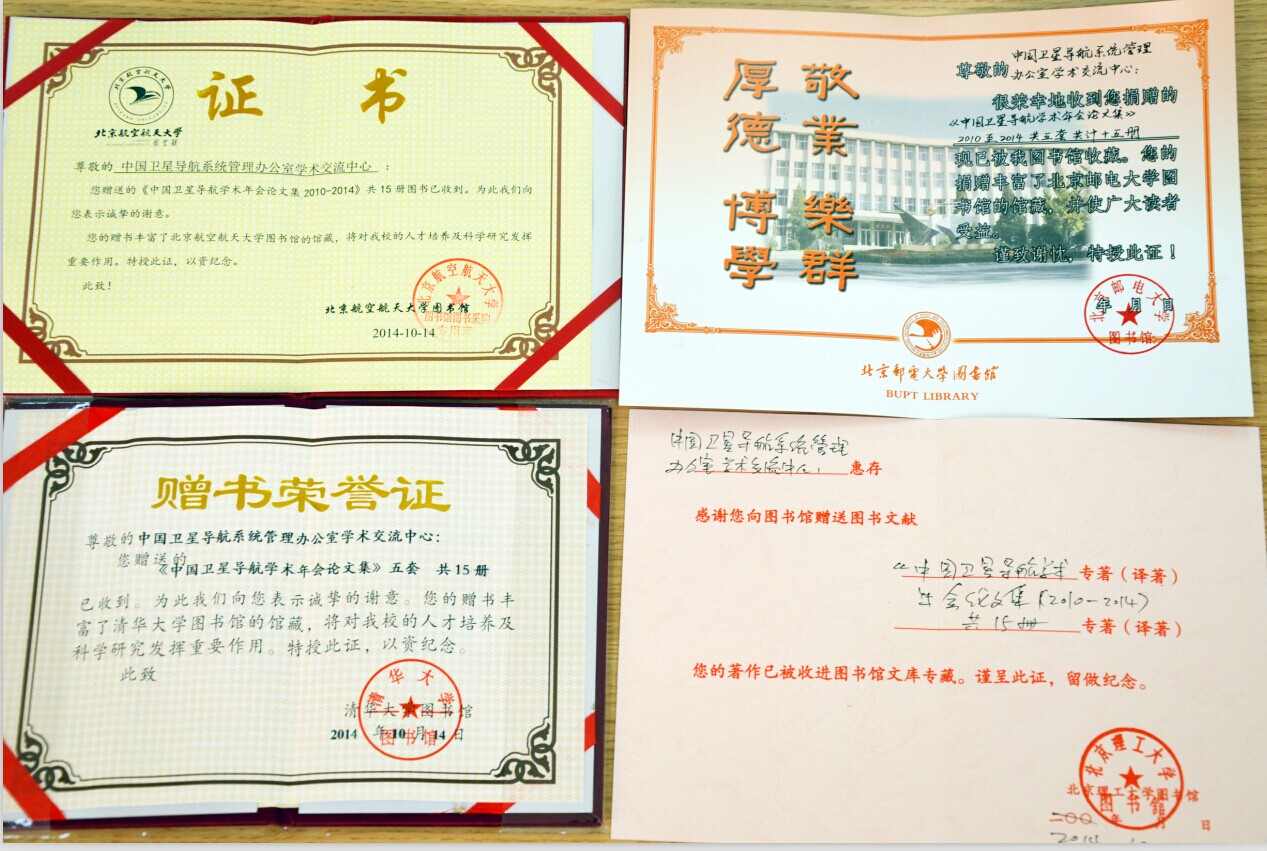 北京航空航天大学
图书馆
证书
尊敬的 中国卫星导航系统管理办公室学术交流中心 ：
您赠送的《中国卫星导航学术年会论文集 2010-2014》共 15 册图书已收到。为此我们向
您表示诚挚的谢意。
您的赠书丰富了北京航空航天大学图书馆的馆藏，将对我校的人才培养及科学研究发挥
重要作用。特授此证，以资纪念。
此致！
北京航空航天大学图书馆
2014-10-14
北京航空航天大学
图书馆图书采购
专用章
厚德 博學
敬業樂群
中国卫星导航系统管理
尊敬的 办公室学术交流中心：
很荣幸地收到您捐赠的
《中国卫星导航学术年会论文集》
2010 至 2014 共五套 共计十五册
现已被我图书馆收藏。您的
捐赠丰富了北京邮电大学图
书馆的馆藏，并使广大读者
受益。
谨致谢忱，特授此证！
年 月 日
北京邮电大学
图书馆
北京郵電大學圖書館
BUPT LIBRARY
赠书荣誉证
尊敬的中国卫星导航系统管理办公室学术交流中心：
您赠送的
《中国卫星导航学术年会论文集》五套 共 15 册
已收到。为此我们向您表示诚挚的谢意。您的赠书丰
富了清华大学图书馆的馆藏，将对我校的人才培养及
科学研究发挥重要作用。特授此证，以资纪念。
此致
清华大学图书馆
2014 年 10 月 14 日
清华大学
图书馆
中国卫星导航系统管理
办公室学术交流中心： 惠存
感谢您向图书馆赠送图书文献
《中国卫星导航学术 专著（译著）
年会论文集（2010-2014）
共 15 册 专著（译著）
您的著作已被收进图书馆文库专藏。谨呈此证，留做纪念。
北京理工大学
图书馆
北京理工大学图书馆
二〇〇 年 月 日
2014